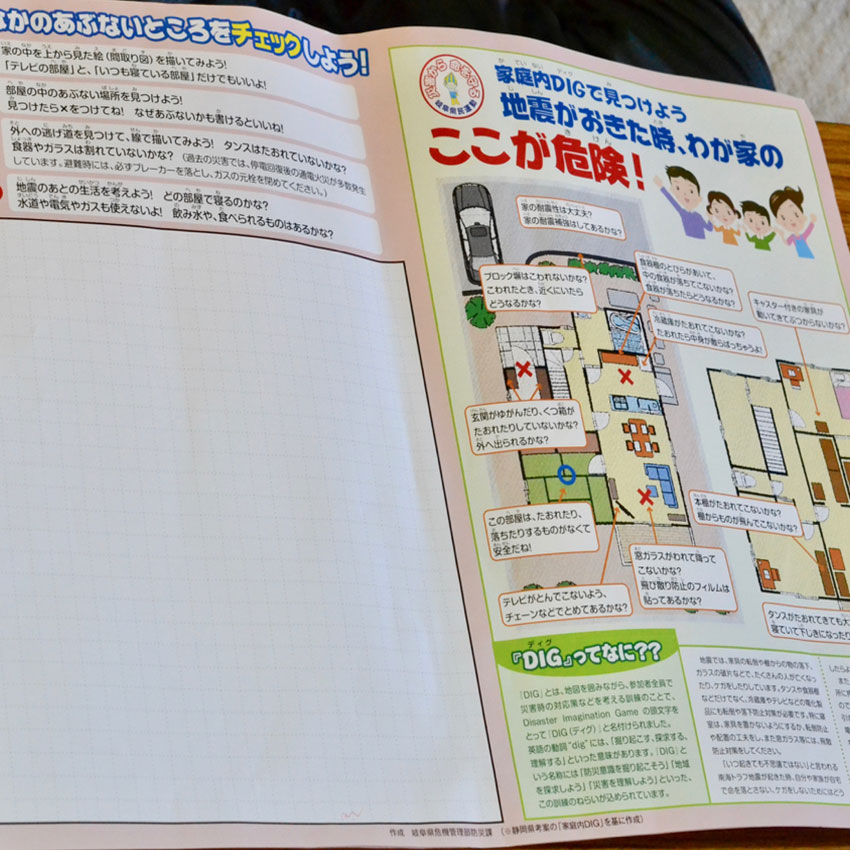 なかのあぶないところをチェックしよう!
家の中を上から見た絵(間取り図)を描いてみよう!
「テレビの部屋」と、「いつも寝ている部屋」だけでもいいよ!
部屋の中のあぶない場所を見つけよう!
見つけたら×をつけてね! なぜあぶないかも書けるといいね!
外への逃げ道を見つけて、線で描いてみよう! タンスはたおれていないかな?
食器やガラスは割れていないかな? (過去の災害では、停電回復後の通電火災が多数発生
しています。避難時には、必ずブレーカーを落とし、ガスの元栓を閉めてください。)
地震のあとの生活を考えよう! どの部屋で寝るのかな?
水道や電気やガスも使えないよ! 飲み水や、食べられるものはあるかな?
災害から命を守る
岐阜県民運動
家庭内DIGで見つけよう
地震がおきた時、わが家の
ここが危険!
家の耐震性は大丈夫?
家の耐震補強はしてあるかな?
ブロック塀はこわれないかな?
こわれたとき、近くにいたら
どうなるかな?
食器棚のとびらがあいて、
中の食器が落ちてこないかな?
食器が落ちたらどうなるかな?
冷蔵庫がたおれてこないかな?
たおれたら中身が散らばっちゃうよ!
キャスター付きの家具が
動いてきてぶつからないかな?
玄関がゆがんだり、くつ箱が
たおれたりしていないかな?
外へ出られるかな?
この部屋は、たおれたり、
落ちたりするものがなくて
安全だね!
テレビがとんでこないよう、
チェーンなどでとめてあるかな?
窓ガラスがわれて降って
こないかな?
飛び散り防止のフィルムは
貼ってあるかな?
本棚がたおれてこないかな?
棚からものが飛んでこないかな?
タンスがたおれてきても大
寝ていて下じきになったり
『DIG』ってなに??
「DIG」とは、地図を囲みながら、参加者全員で
災害時の対応策などを考える訓練のことで、
Disaster Imagination Game の頭文字を
とって「DIG(ディグ)」と名付けられました。
英語の動詞"dig"には、「掘り起こす、探求する、
理解する」といった意味があります。「DIG」と
いう名称には「防災意識を掘り起こそう」「地域
を探求しよう」「災害を理解しよう」といった、
この訓練のねらいが込められています。
地震では、家具の転倒や棚からの物の落下、
ガラスの破片などで、たくさんの人が亡くなっ
たり、ケガをしたりしています。タンスや食器棚
などだけでなく、冷蔵庫やテレビなどの電化製
品にも転倒や落下防止対策が必要です。特に寝
室は、家具を置かないようにするか、転倒防止
や配置の工夫をし、また窓ガラス等には、飛散
防止対策をしてください。
「いつ起きても不思議ではない」と言われる
南海トラフ地震が起きた時、自分や家族が自宅
で命を落とさない、ケガをしないためにはどう
作成 岐阜県危機管理部防災課 (※静岡県考案の「家庭内DIG」を基に作成)